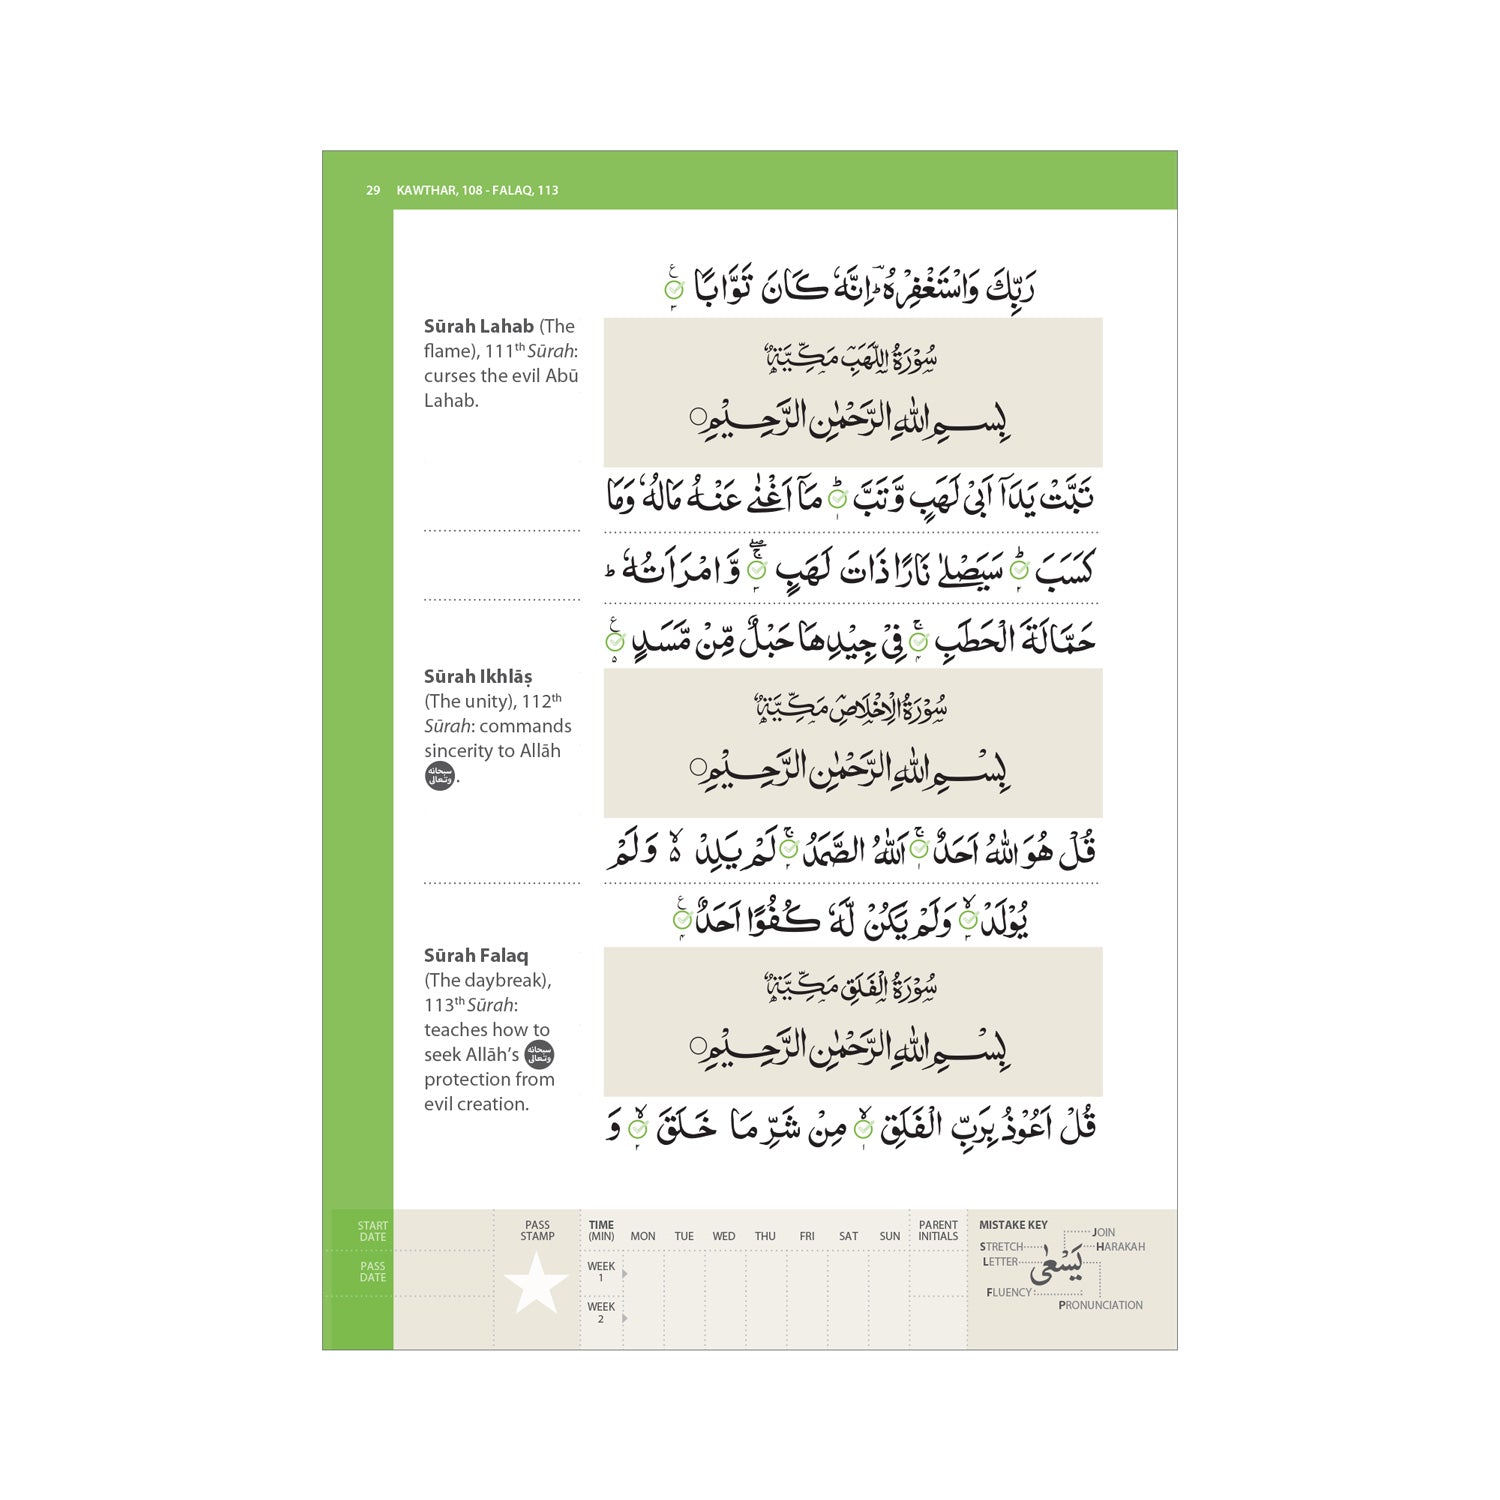 29 KAWTHAR, 108 - FALAQ, 113
رَبِّكَ وَاسْتَغْفِرْهُ ؔؕ اِنَّهٗ كَانَ تَوَّابًا ۝۳ ع
Sūrah Lahab (The
flame), 111th Sūrah:
curses the evil Abū
Lahab.
سُوْرَةُ اللَّهَبِ مَكِّيَّةٌ
بِسْمِ اللّٰهِ الرَّحْمٰنِ الرَّحِيْمِ ○
تَبَّتْ يَدَاۤ اَبِيْ لَهَبٍ وَّتَبَّ ؕ۝۱ مَاۤ اَغْنٰى عَنْهُ مَالُهٗ وَمَا
كَسَبَ ؕ۝۲ سَيَصْلٰى نَارًا ذَاتَ لَهَبٍ ۚۖ۝۳ وَّامْرَاَتُهٗ ؕ
حَمَّالَةَ الْحَطَبِ ۚ۝۴ فِيْ جِيْدِهَا حَبْلٌ مِّنْ مَّسَدٍ ۝۵ ع
Sūrah Ikhlāṣ
(The unity), 112th
Sūrah: commands
sincerity to Allāh
سبحانه وتعالى.
سُوْرَةُ الْاِخْلَاصِ مَكِّيَّةٌ
بِسْمِ اللّٰهِ الرَّحْمٰنِ الرَّحِيْمِ ○
قُلْ هُوَ اللّٰهُ اَحَدٌ ۚ۝۱ اَللّٰهُ الصَّمَدُ ۚ۝۲ لَمْ يَلِدْ ۙ۬ وَلَمْ
يُوْلَدْ ۙ۝۳ وَلَمْ يَكُنْ لَّهٗ كُفُوًا اَحَدٌ ۝۴ ع
Sūrah Falaq
(The daybreak),
113th Sūrah:
teaches how to
seek Allāh's سبحانه وتعالى
protection from
evil creation.
سُوْرَةُ الْفَلَقِ مَكِّيَّةٌ
بِسْمِ اللّٰهِ الرَّحْمٰنِ الرَّحِيْمِ ○
قُلْ اَعُوْذُ بِرَبِّ الْفَلَقِ ۙ۝۱ مِنْ شَرِّ مَا خَلَقَ ۙ۝۲ وَ
START DATE
PASS DATE
PASS STAMP
TIME (MIN) MON TUE WED THU FRI SAT SUN PARENT INITIALS
WEEK 1
WEEK 2
MISTAKE KEY
JOIN
STRETCH HARAKAH
LETTER يَسْعٰى
FLUENCY
PRONUNCIATION